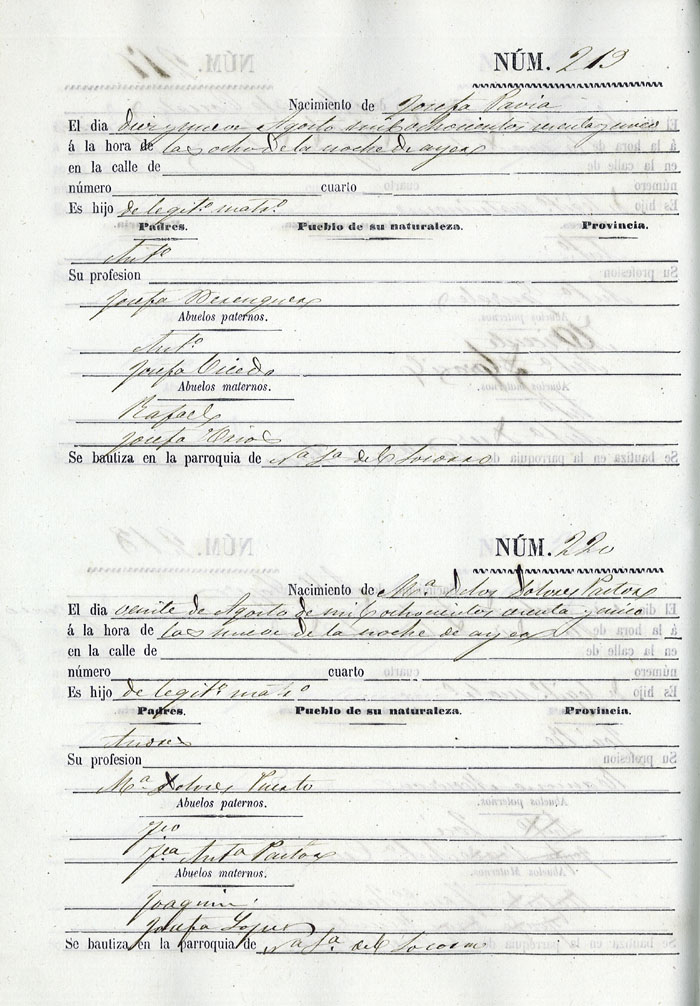 NÚM. 219
Nacimiento de Josefa Pavia
El dia diez y nueve Agosto mil ochocientos y cinco
á la hora de las ocho de la noche de ayer
en la calle de
número cuarto
Es hijo de legit.º mat.º
Padres. Pueblo de su naturaleza. Provincia.
Ant.º
Su profesion
Josefa Berenguer
Abuelos paternos.
Ant.º
Josefa Vicedo
Abuelos maternos.
Rafael
Josefa
Se bautiza en la parroquia de N.ª S.ª del Socorro
NÚM. 220
Nacimiento de M.ª de los Dolores Pastor
El dia veinte de Agosto de mil ochocientos y cinco
á la hora de las nueve de la noche de ayer
en la calle de
número cuarto
Es hijo de legit.º mat.º
Padres. Pueblo de su naturaleza. Provincia.
Andres
Su profesion
M.ª Dolores
Abuelos paternos.
Fco
Fca Ant.ª Pastor
Abuelos maternos.
Joaquin
Josefa Lopez
Se bautiza en la parroquia de N.ª S.ª del Socorro